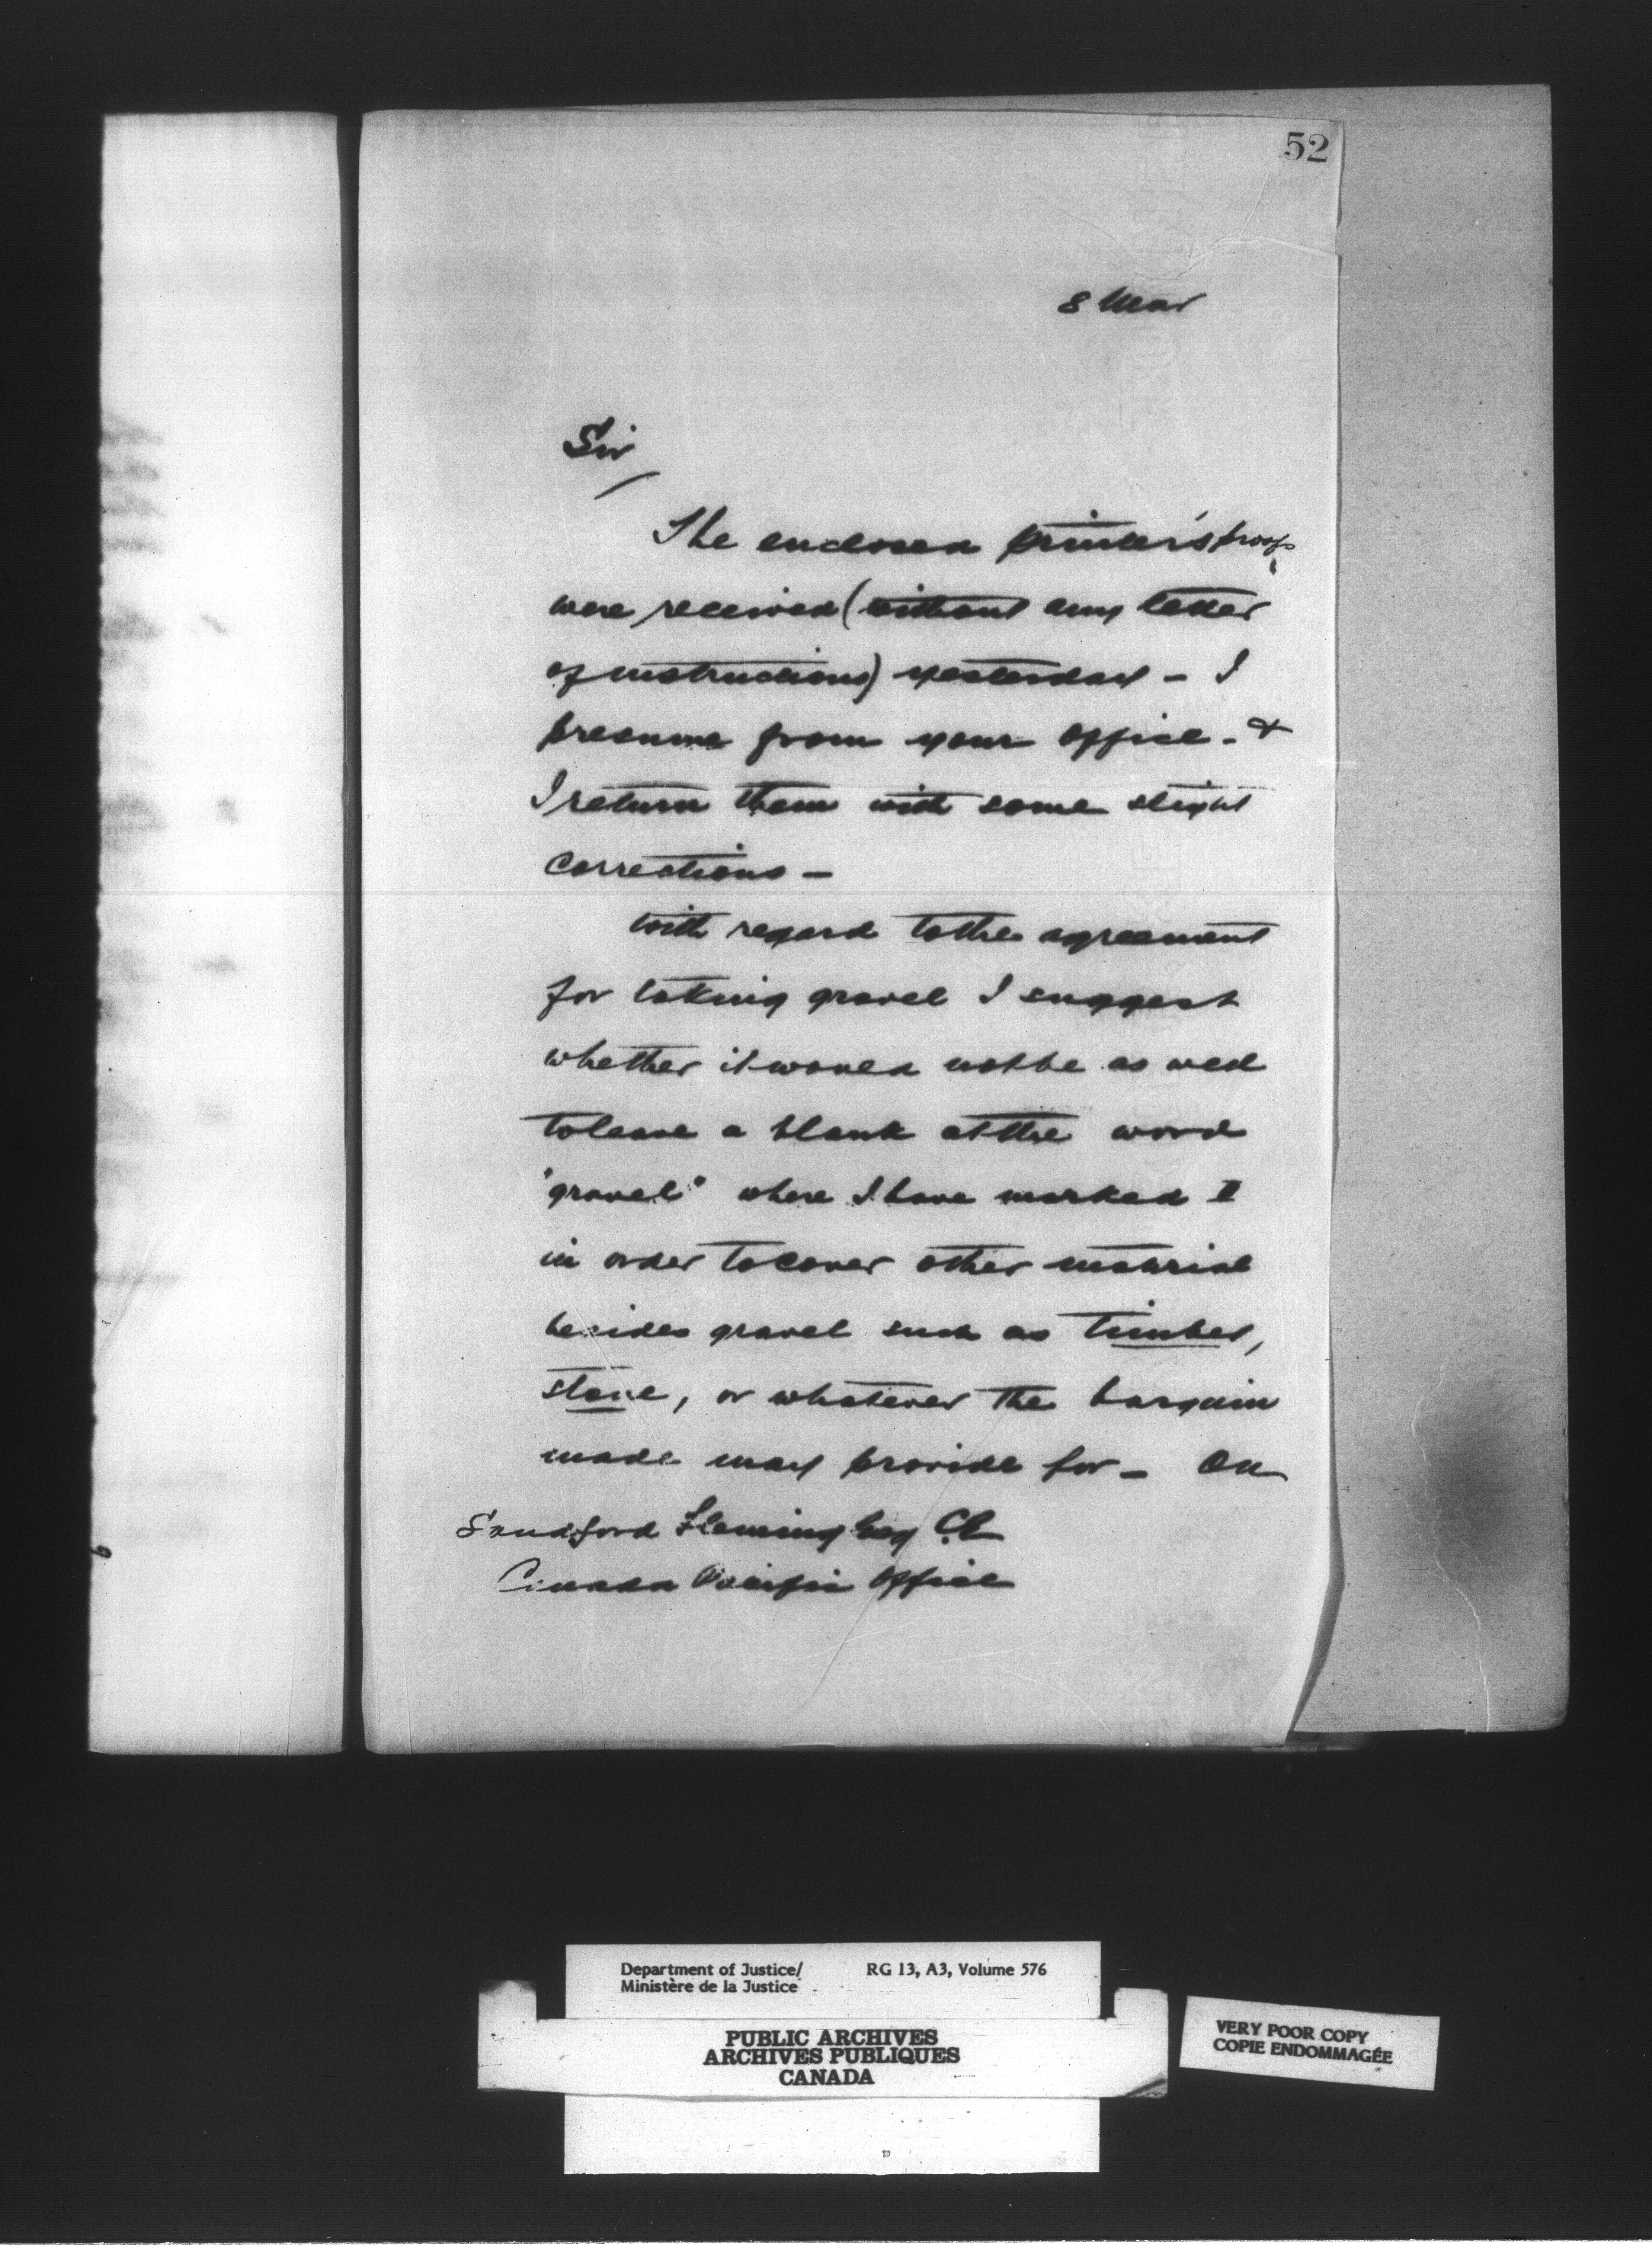 52
8 Mar
Sir
The enclosed printer's proofs
were received (without any letter
of instructions) yesterday - I
presume from your office - &
I return them with some slight
corrections -
With regard to the agreement
for taking gravel I suggest
whether it would not be as well
to leave a blank at the word
"gravel" where I have marked
in order to cover other material
besides gravel such as timber,
stone, or whatever the bargain
made may provide for - On
Sandford Fleming Esq C.E
Canada Pacific Office
Department of Justice/ RG 13, A3, Volume 576
Ministère de la Justice
PUBLIC ARCHIVES
ARCHIVES PUBLIQUES
CANADA
VERY POOR COPY
COPIE ENDOMMAGÉE